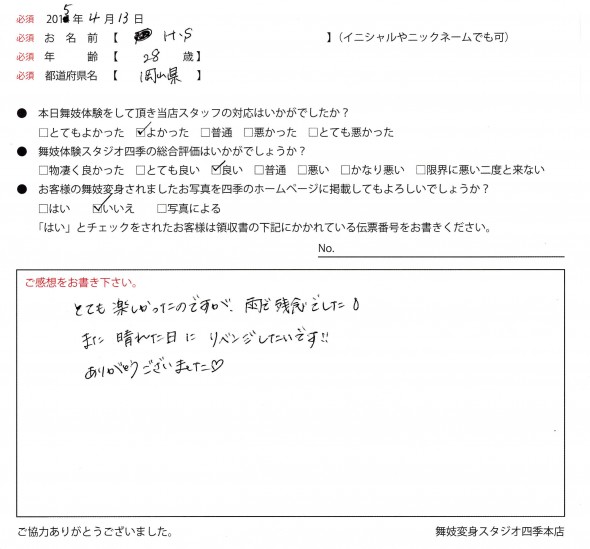 必須 2015年4月13日
必須 お名前【 H.S 】(イニシャルやニックネームでも可)
必須 年齢【 28 歳】
必須 都道府県名【 岡山県 】
● 本日舞妓体験をして頂き当店スタッフの対応はいかがでしたか?
□とてもよかった ☑よかった □普通 □悪かった □とても悪かった
● 舞妓体験スタジオ四季の総合評価はいかがでしょうか?
□物凄く良かった □とても良い ☑良い □普通 □悪い □かなり悪い □限界に悪い二度と来ない
● お客様の舞妓変身されましたお写真を四季のホームページに掲載してもよろしいでしょうか?
□はい ☑いいえ □写真による
「はい」とチェックをされたお客様は領収書の下記にかかれている伝票番号をお書きください。
No.
ご感想をお書き下さい。
とても楽しかったのですが、雨で残念でした
また晴れた日にリベンジしたいです!!
ありがとうございました♡
ご協力ありがとうございました。 舞妓変身スタジオ四季本店